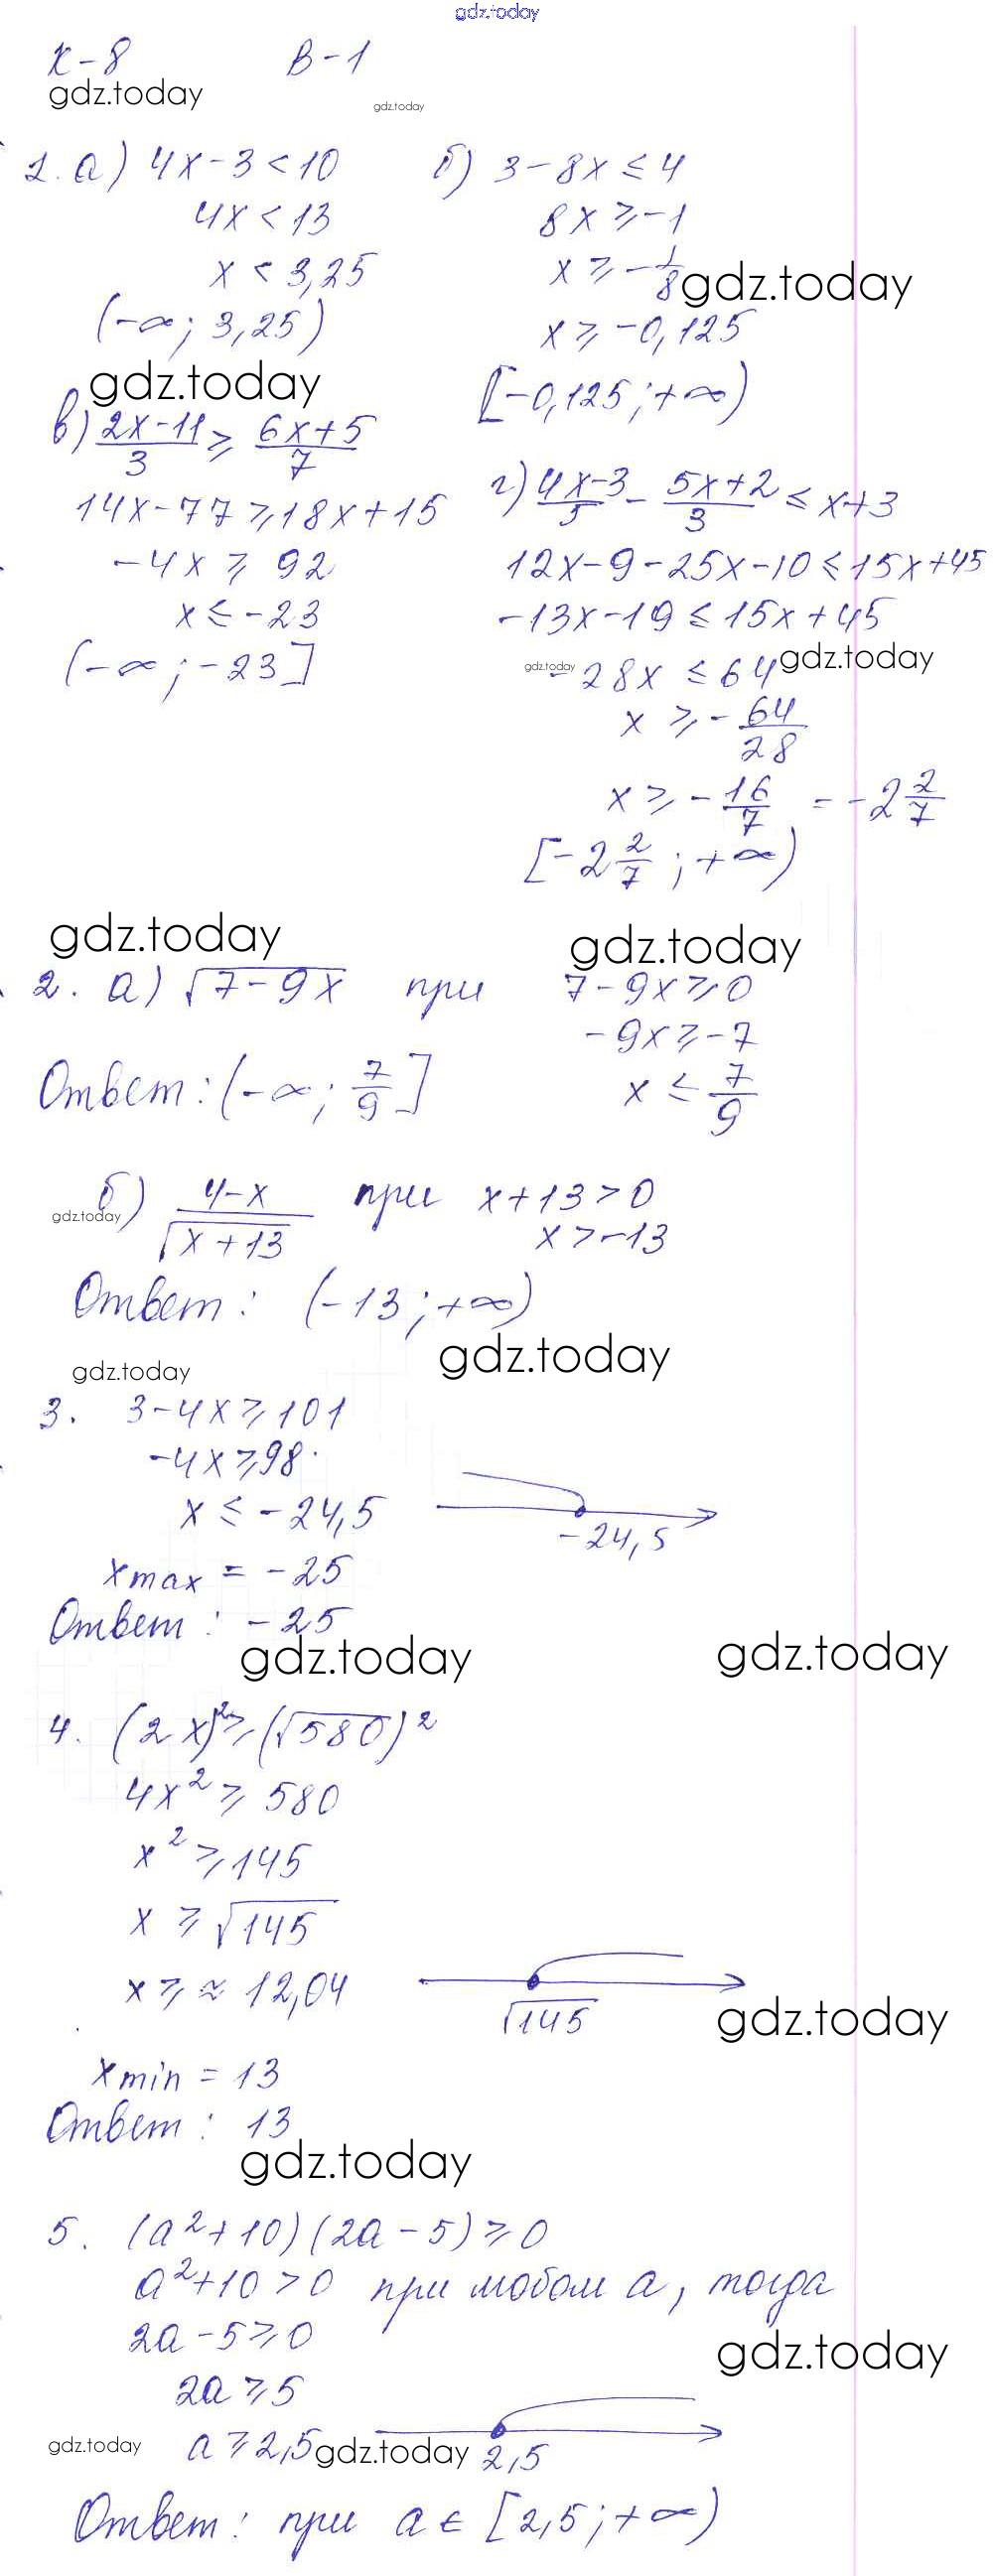 gdz.today
К-8 В-1
gdz.today
gdz.today
1. а) 4x-3<10 б) 3-8x≤4
4x<13 8x≥-1
x<3,25 x≥-1/8
gdz.today
(-∞; 3,25) x≥-0,125
gdz.today
[-0,125; +∞)
в) (2x-11)/3 ≥ (6x+5)/7
14x-77≥18x+15 г) (4x-3)/5 - (5x+2)/3 ≤ x+3
-4x≥92 12x-9-25x-10≤15x+45
x≤-23 -13x-19≤15x+45
(-∞; -23] gdz.today -28x≤64 gdz.today
x≥-64/28
x≥-16/7 = -2 2/7
[-2 2/7; +∞)
gdz.today gdz.today
2. а) √(7-9x) при 7-9x≥0
-9x≥-7
Ответ: (-∞; 7/9] x≤7/9
б) (4-x)/√(x+13) при x+13>0
gdz.today
x>-13
Ответ: (-13; +∞)
gdz.today
gdz.today
3. 3-4x≥101
-4x≥98
x≤-24,5
-24,5
xmax = -25
Ответ: -25
gdz.today gdz.today
4. (2x)²≥(√580)²
4x²≥580
x²≥145
x≥√145
x≥≈12,04
√145 gdz.today
xmin = 13
Ответ: 13
gdz.today
5. (a²+10)(2a-5)≥0
a²+10>0 при любом a, тогда
2a-5≥0
gdz.today
2a≥5
gdz.today a≥2,5 gdz.today 2,5
Ответ: при a∈[2,5; +∞)